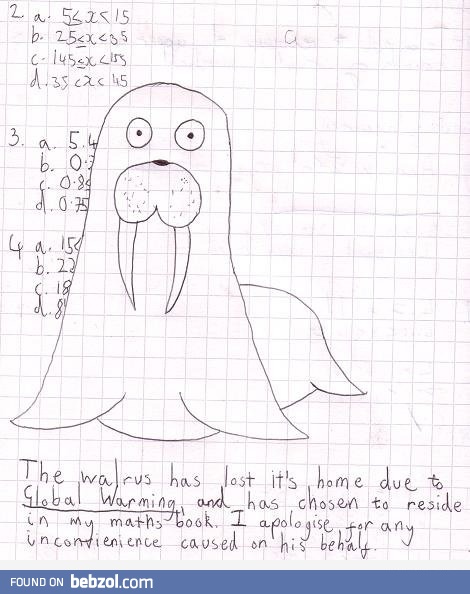 2. a. 5≤x<15
b. 25≤x<35
c. 145≤x<155
d. 35<x<45
3. a. 5.4
b. 0.
c. 0.8
d. 0.75
4 a. 15
b. 22
c. 18
d. 8
The walrus has lost it's home due to
Global Warming, and has chosen to reside
in my maths book. I apologise for any
inconvienience caused on his behalf.
FOUND ON bebzol.com